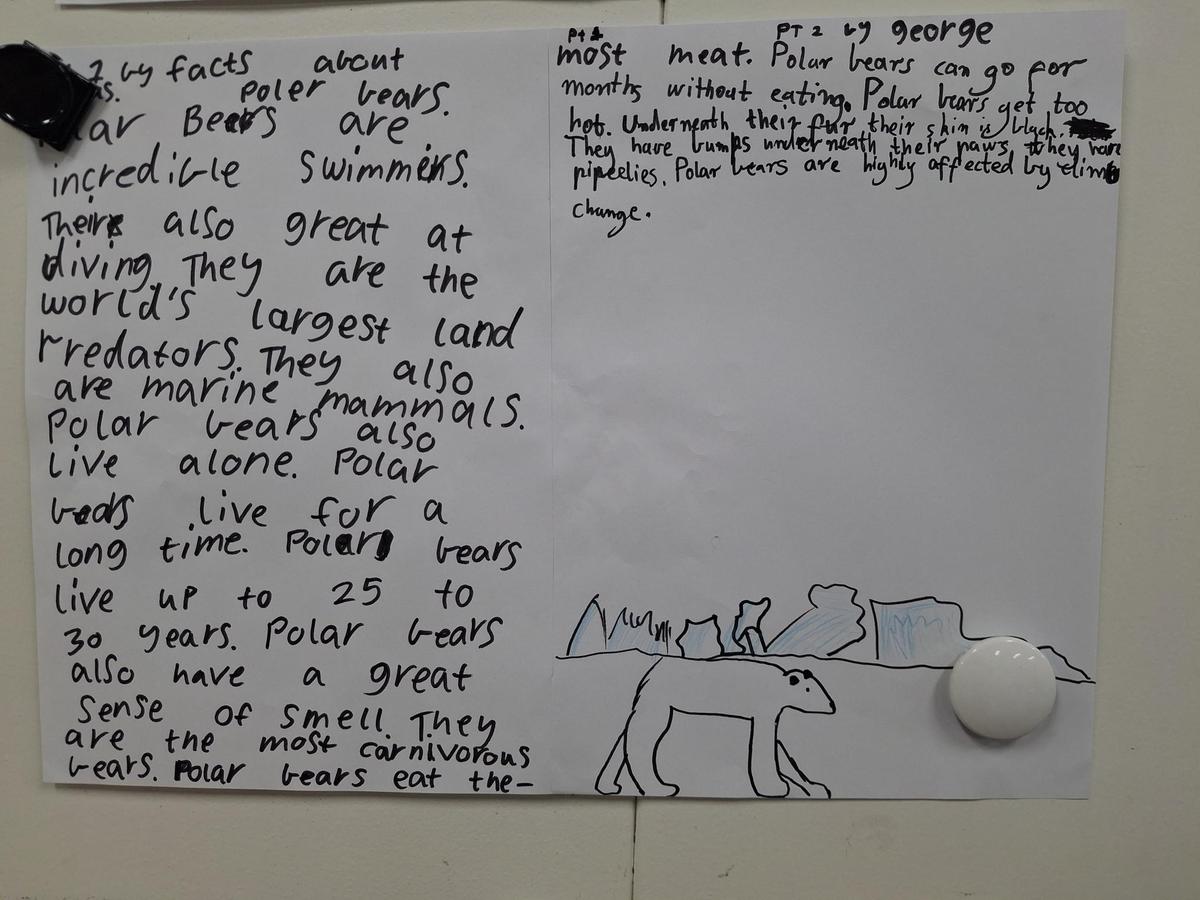 by facts about
Poler bears.
Bears are
incredible swimmers.
Their also great at
diving. They are the
world's largest land
Predators. They also
are marine mammals.
Polar bears also
live alone. Polar
bears live for a
long time. Polar bears
live up to 25 to
30 years. Polar bears
also have a great
sense of smell. They
are the most carnivorous
bears. Polar bears eat the-
Pt 2 by george
most meat. Polar bears can go for
months without eating. Polar bears get too
hot. Underneath their fur their skin is black.
They have bumps underneath their paws. they have
pipeelies. Polar bears are highly affected by
change.